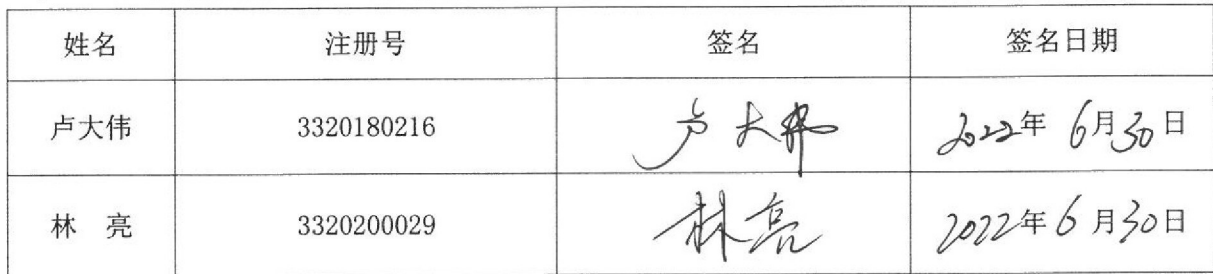 姓名 注册号 签名 签名日期
卢大伟 3320180216 卢大伟 2022年 6月30日
林 亮 3320200029 林亮 2022年6月30日